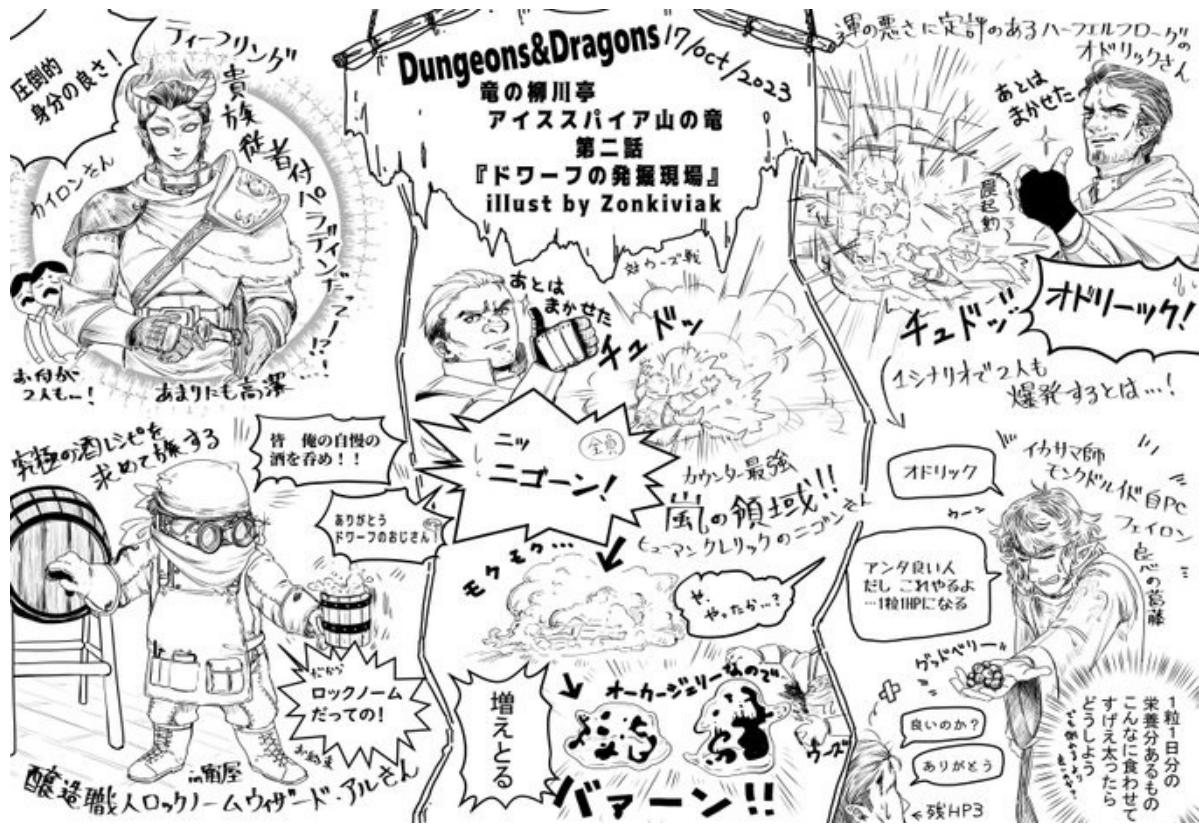 圧倒的
身分の良さ！
ティーフリング
貴族
従者付
パラディンだって！？！
カイロンさん
お付が
2人も…！
あまりにも高潔…！
Dungeons&Dragons
17/oct/2023
竜の柳川亭
アイススパイア山の竜
第二話
『ドワーフの発掘現場』
illust by Zonkiviak
運の悪さに定評のあるハーフエルフローグの
オドリックさん
あとは
まかせた
罠起動
チュドッ
オドリーック！
1シナリオで2人も
爆発するとは…！
対ウーズ戦
あとは
まかせた
チュドッ
ニッ
ニゴーン！
全員
カウンター最強
嵐の領域！！
ヒューマンクレリックのニゴンさん
モクモク…
や、
やったか…？
増えとる
オーカージェリーなので
ウーズ
バァーン！！
究極の酒レシピを
求めて旅する
皆　俺の自慢の
酒を呑め！！
ありがとう
ドワーフのおじさん！
だから
ロックノーム
だっての！
in宿屋
醸造職人ロックノームウィザード・アルさん
イカサマ師
モンクドルイド自PC
フェイロン
オドリック
ウーン
アンタ良い人
だし これやるよ
…1粒1HPになる
良心の葛藤
グッドベリー
良いのか？
ありがとう
←残HP3
1粒1日分の
栄養分あるもの
こんなに食わせて
すげえ太ったら
どうしよう